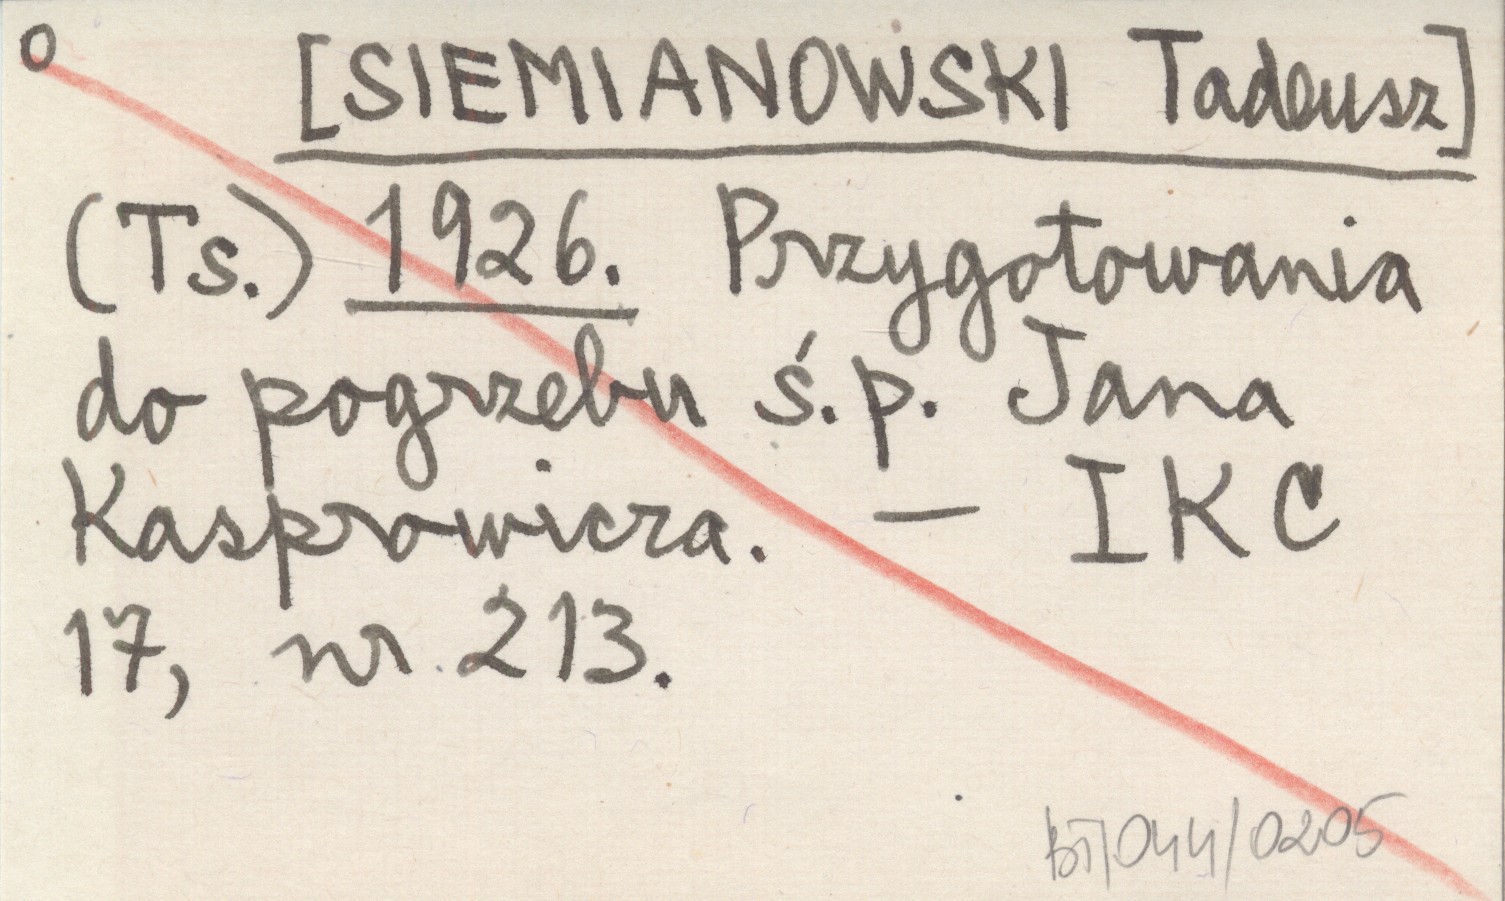 o [SIEMIANOWSKI Tadeusz]
(Ts.) 1926. Przygotowania
do pogrzebu ś.p. Jana
Kasprowicza. — IKC
17, nr 213.
BT/044/0205